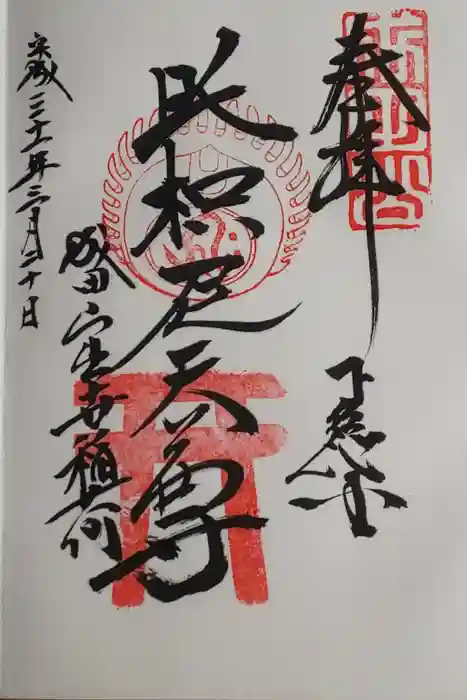 奉拝
下総
吒枳尼天尊
成田山出世稲荷
平成三十一年三月二十日